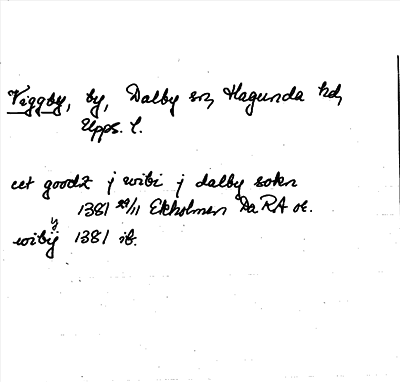 Viggby, by, Dalby sn, Hagunda hd,
Upps. l.
eet goodz j wibi j dalby sokn
1381 29/11 Ekholmen Da RA or.
y
wibij 1381 ib.